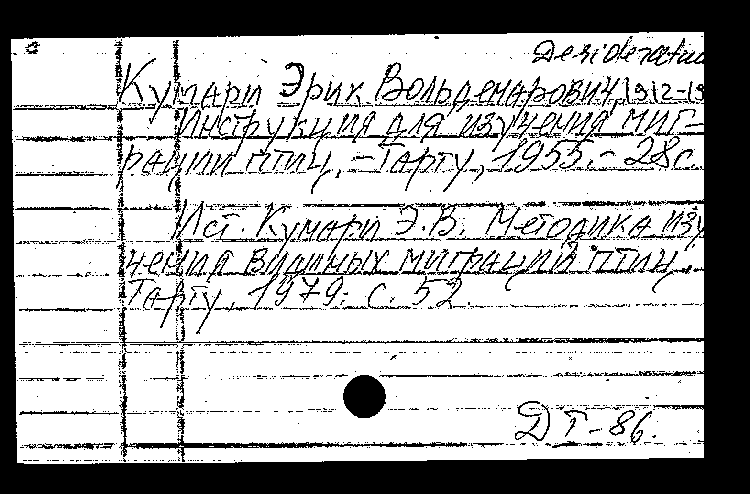 Desideratu
Кумари Эрик Вольдемарович, 1912-19
Инструкция для изучения миг-
рации птиц. - Тарту, 1955. - 28 с.
Ист. Кумари Э.В. Методика изу
чения видимых миграций птиц.
Тарту, 1979. с. 52.
ДТ-86.